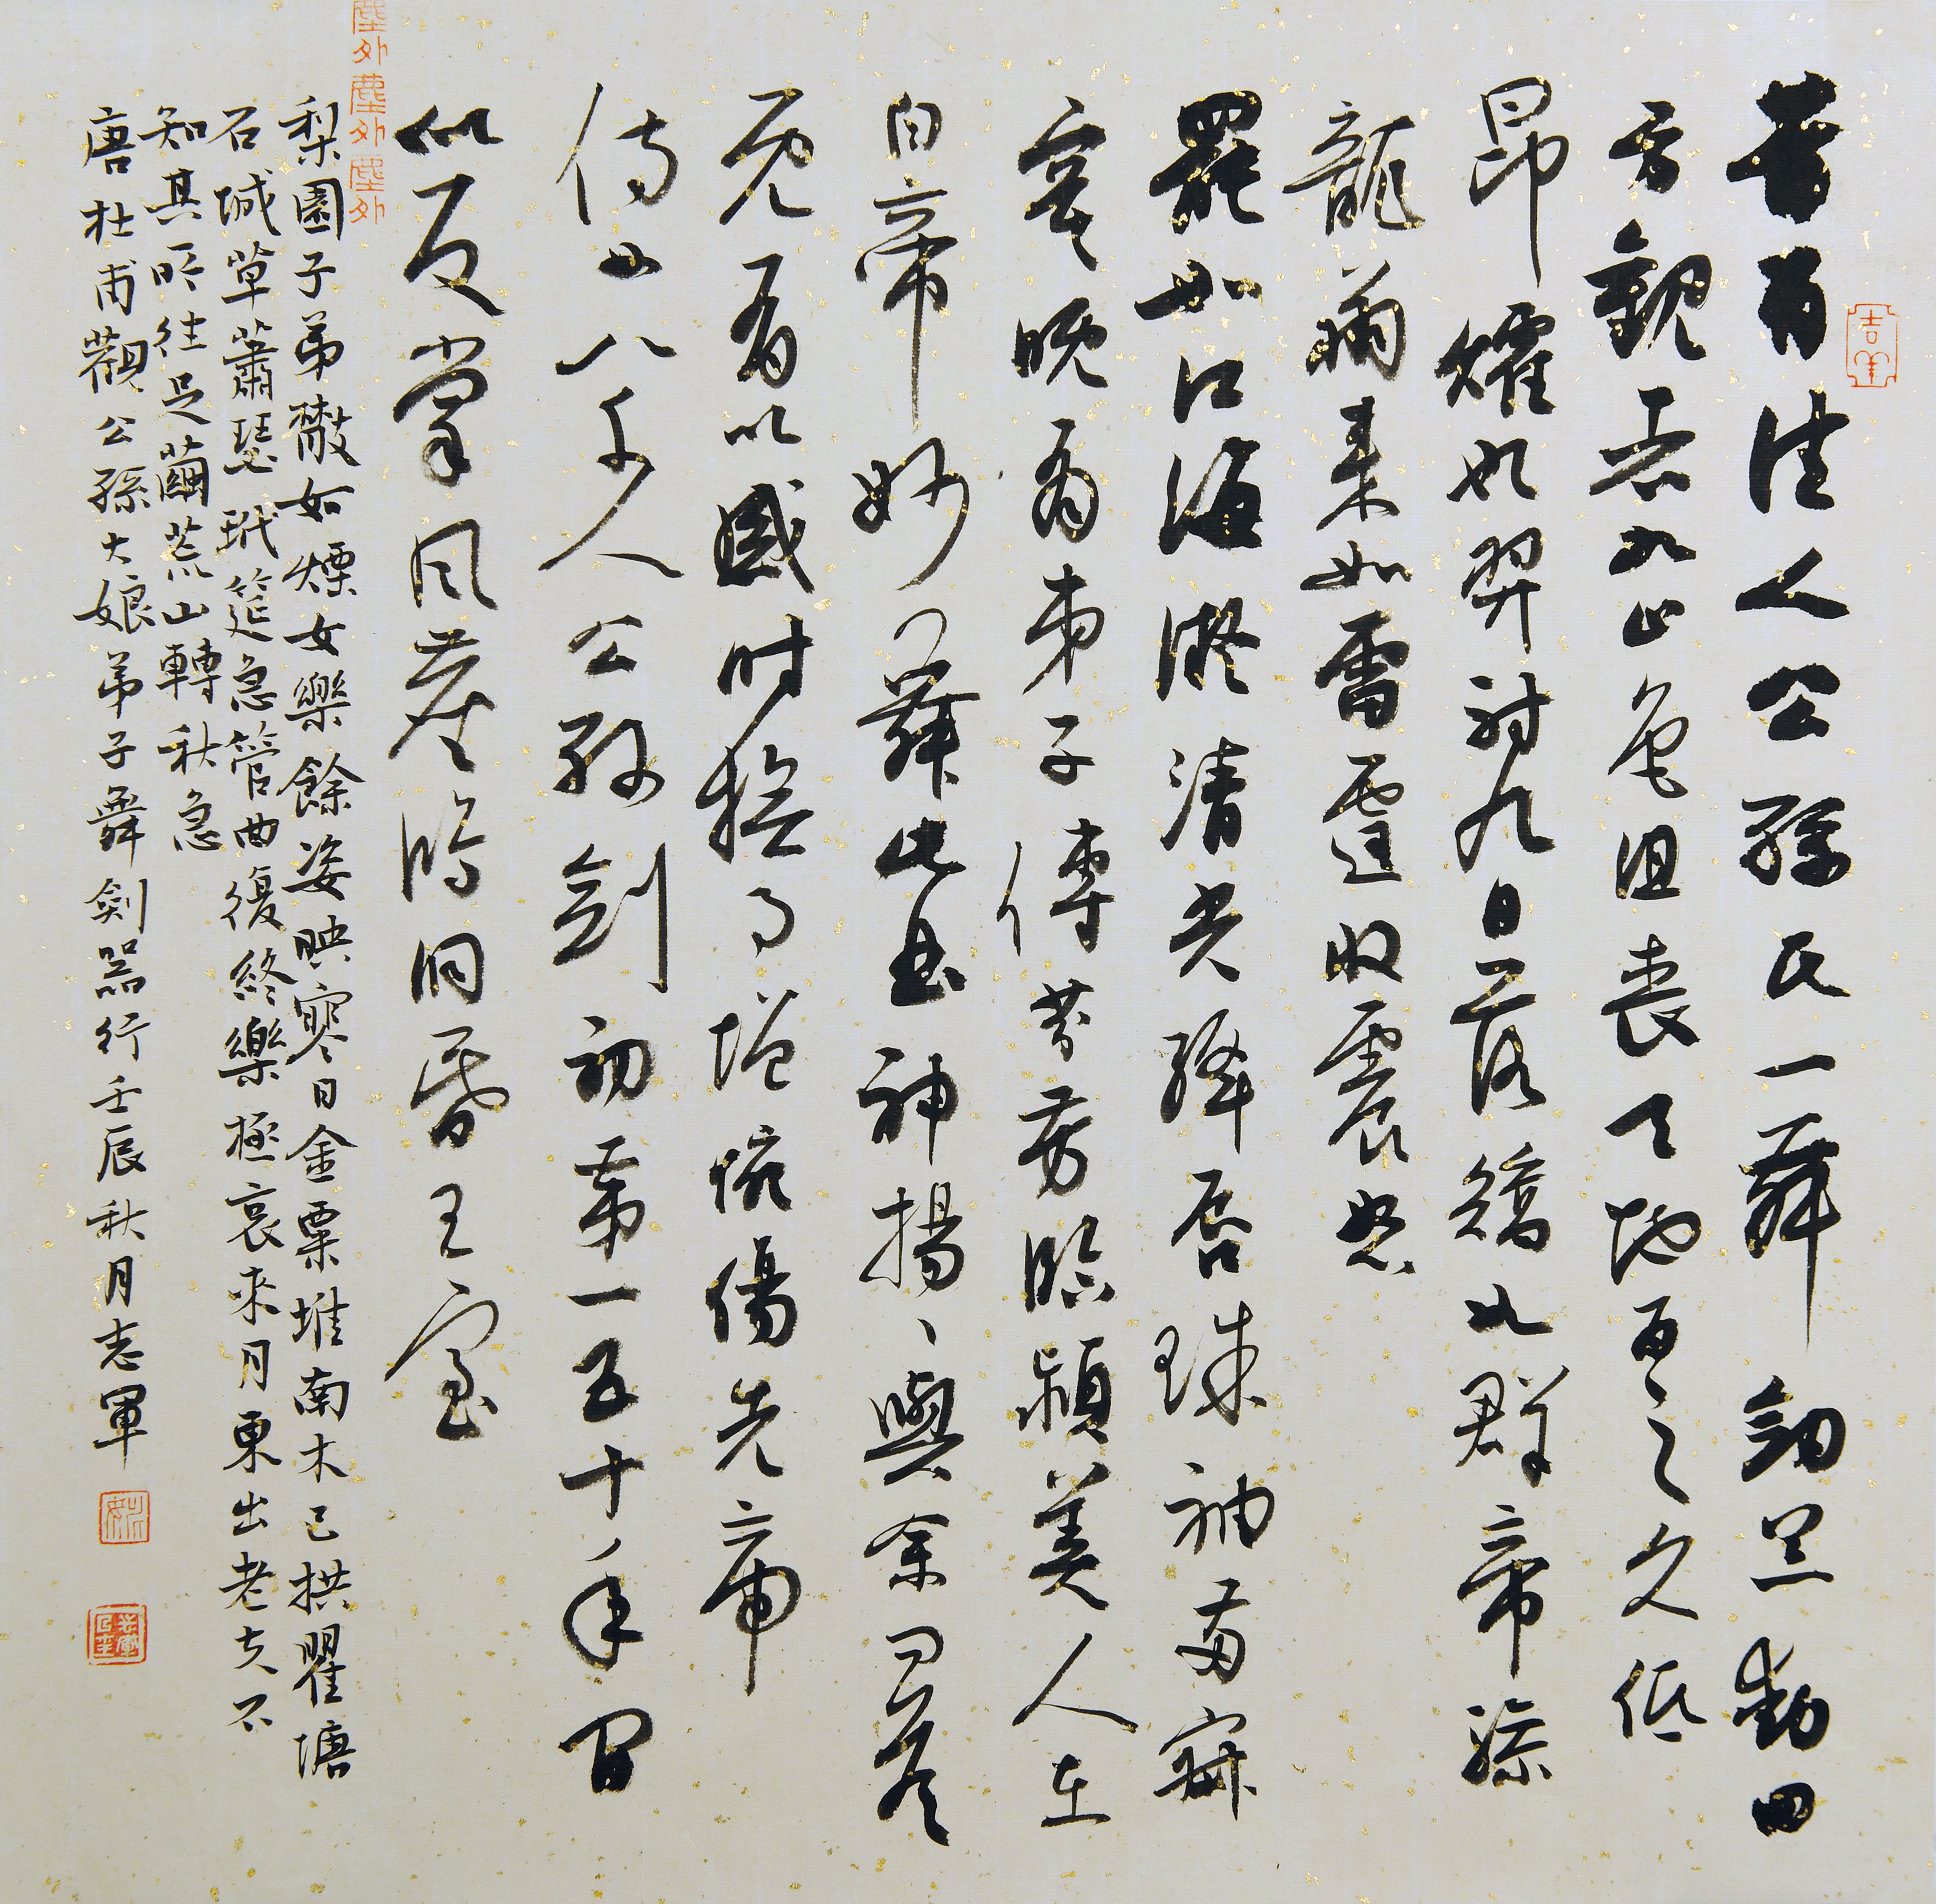 昔有佳人公孫氏一舞劍器動四
方觀者如山色沮喪天地為之久低
昂燿如羿射九日落矯如群帝驂
龍翔來如雷霆收震怒
罷如江海凝清光絳唇珠袖兩寂
寞晚有弟子傳芬芳臨潁美人在
白帝妙舞此曲神揚〻與余問答
既有以感時撫事增惋傷先帝
侍女八千人公孫劍初第一五十年間
似反掌風塵澒洞昏王室
梨園子弟散如煙女樂餘姿映寒日金粟堆南木已拱瞿塘
石城草蕭瑟玳筵急管曲復終樂極哀來月東出老夫不
知其所往足繭荒山轉秋急
唐杜甫觀公孫大娘弟子舞劍器行壬辰秋月志軍
吉羊
塵外塵外塵外